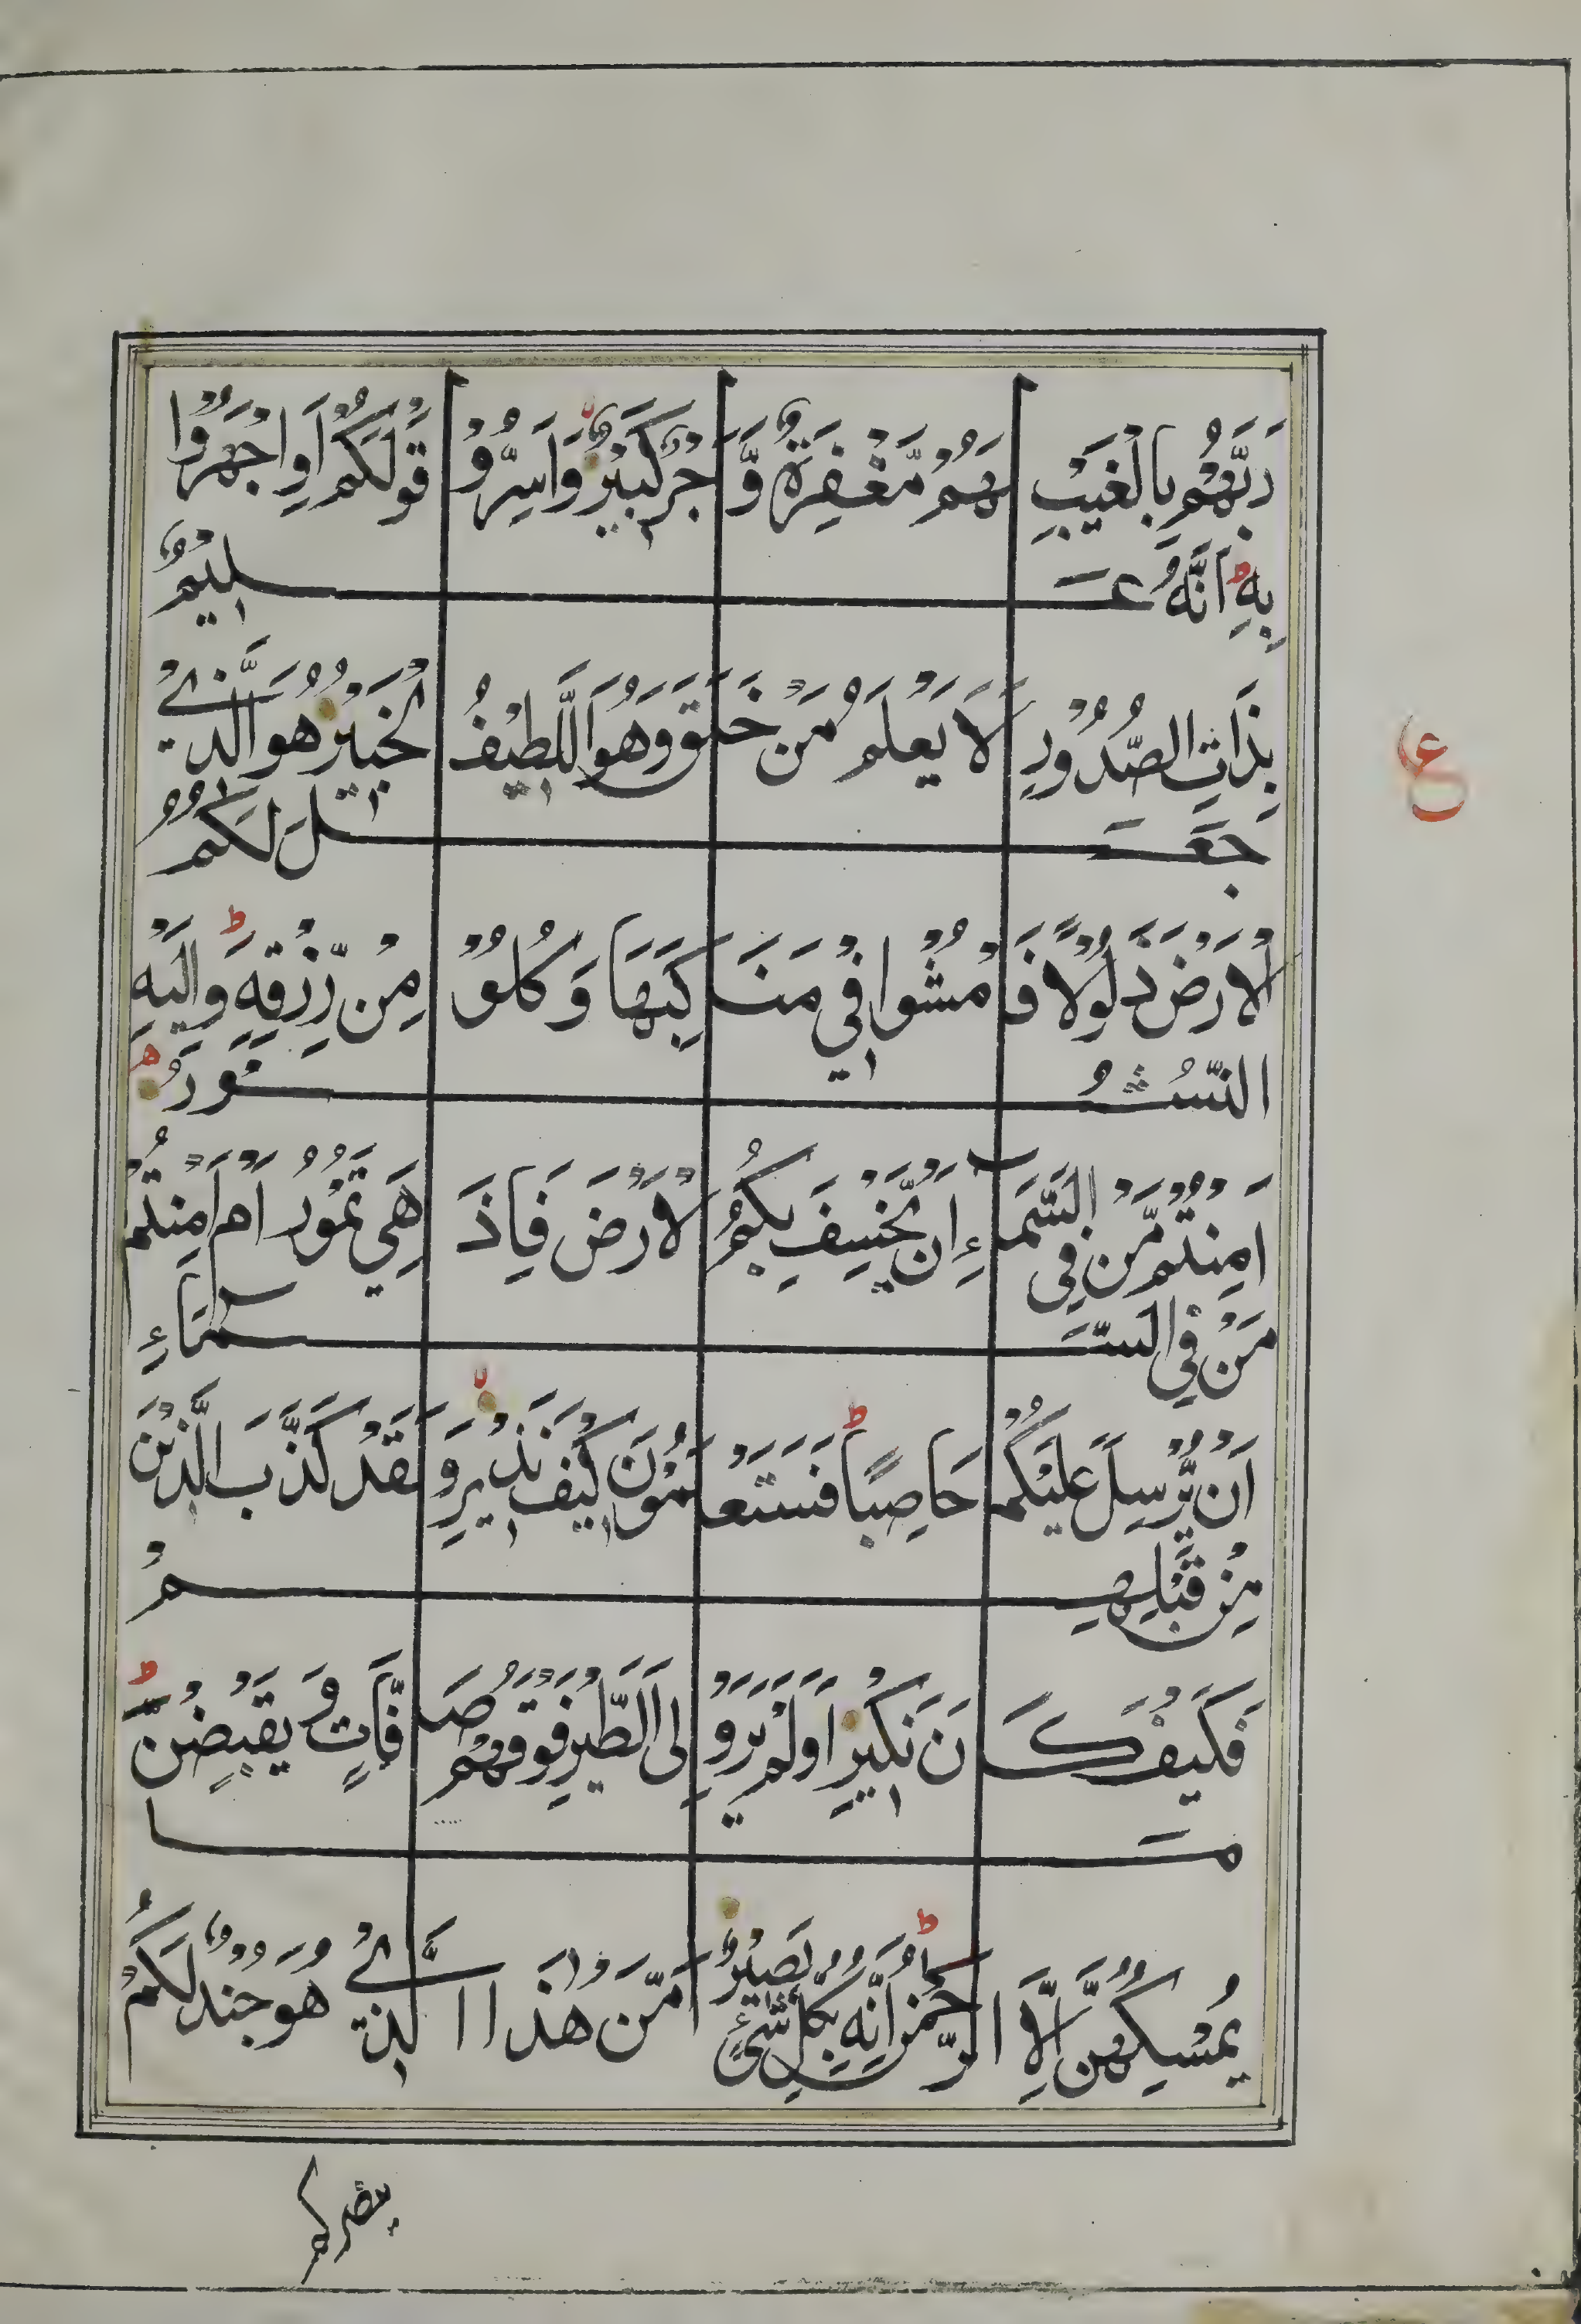 رَبَّهُمْ بِالْغَيْبِ لَهُمْ مَّغْفِرَةٌ وَّاَجْرٌ كَبِيْرٌ وَاَسِرُّوْا قَوْلَكُمْ اَوِ اجْهَرُوْا
بِهٖ ط اِنَّهُ عَلِيْمٌ
بِذَاتِ الصُّدُوْرِ اَلَا يَعْلَمُ مَنْ خَلَقَ وَهُوَ اللَّطِيْفُ الْخَبِيْرُ هُوَ الَّذِيْ
جَعَلَ لَكُمُ
الْاَرْضَ ذَلُوْلًا فَامْشُوْا فِيْ مَنَاكِبِهَا وَكُلُوْا مِنْ رِّزْقِهٖ ط وَاِلَيْهِ
النُّشُوْرُ
ءَاَمِنْتُمْ مَّنْ فِى السَّمَآءِ اَنْ يَّخْسِفَ بِكُمُ الْاَرْضَ فَاِذَا هِيَ تَمُوْرُ اَمْ اَمِنْتُمْ
مَنْ فِي السَّمَآءِ
اَنْ يُّرْسِلَ عَلَيْكُمْ حَاصِبًا ط فَسَتَعْلَمُوْنَ كَيْفَ نَذِيْرِ وَلَقَدْ كَذَّبَ الَّذِيْنَ
مِنْ قَبْلِهِمْ
فَكَيْفَ كَانَ نَكِيْرِ اَوَلَمْ يَرَوْا اِلَى الطَّيْرِ فَوْقَهُمْ صَافَّاتٍ وَّيَقْبِضْنَ ط
مَا
يُمْسِكُهُنَّ اِلَّا الرَّحْمٰنُ ط اِنَّهٗ بِكُلِّ شَيْءٍ بَصِيْرٌ اَمَّنْ هٰذَا الَّذِيْ هُوَ جُنْدٌ لَّكُمْ
ينصركم
ع